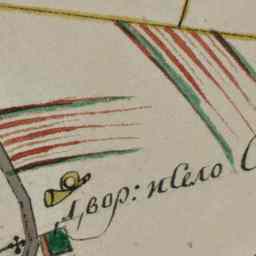 Двор: и Село